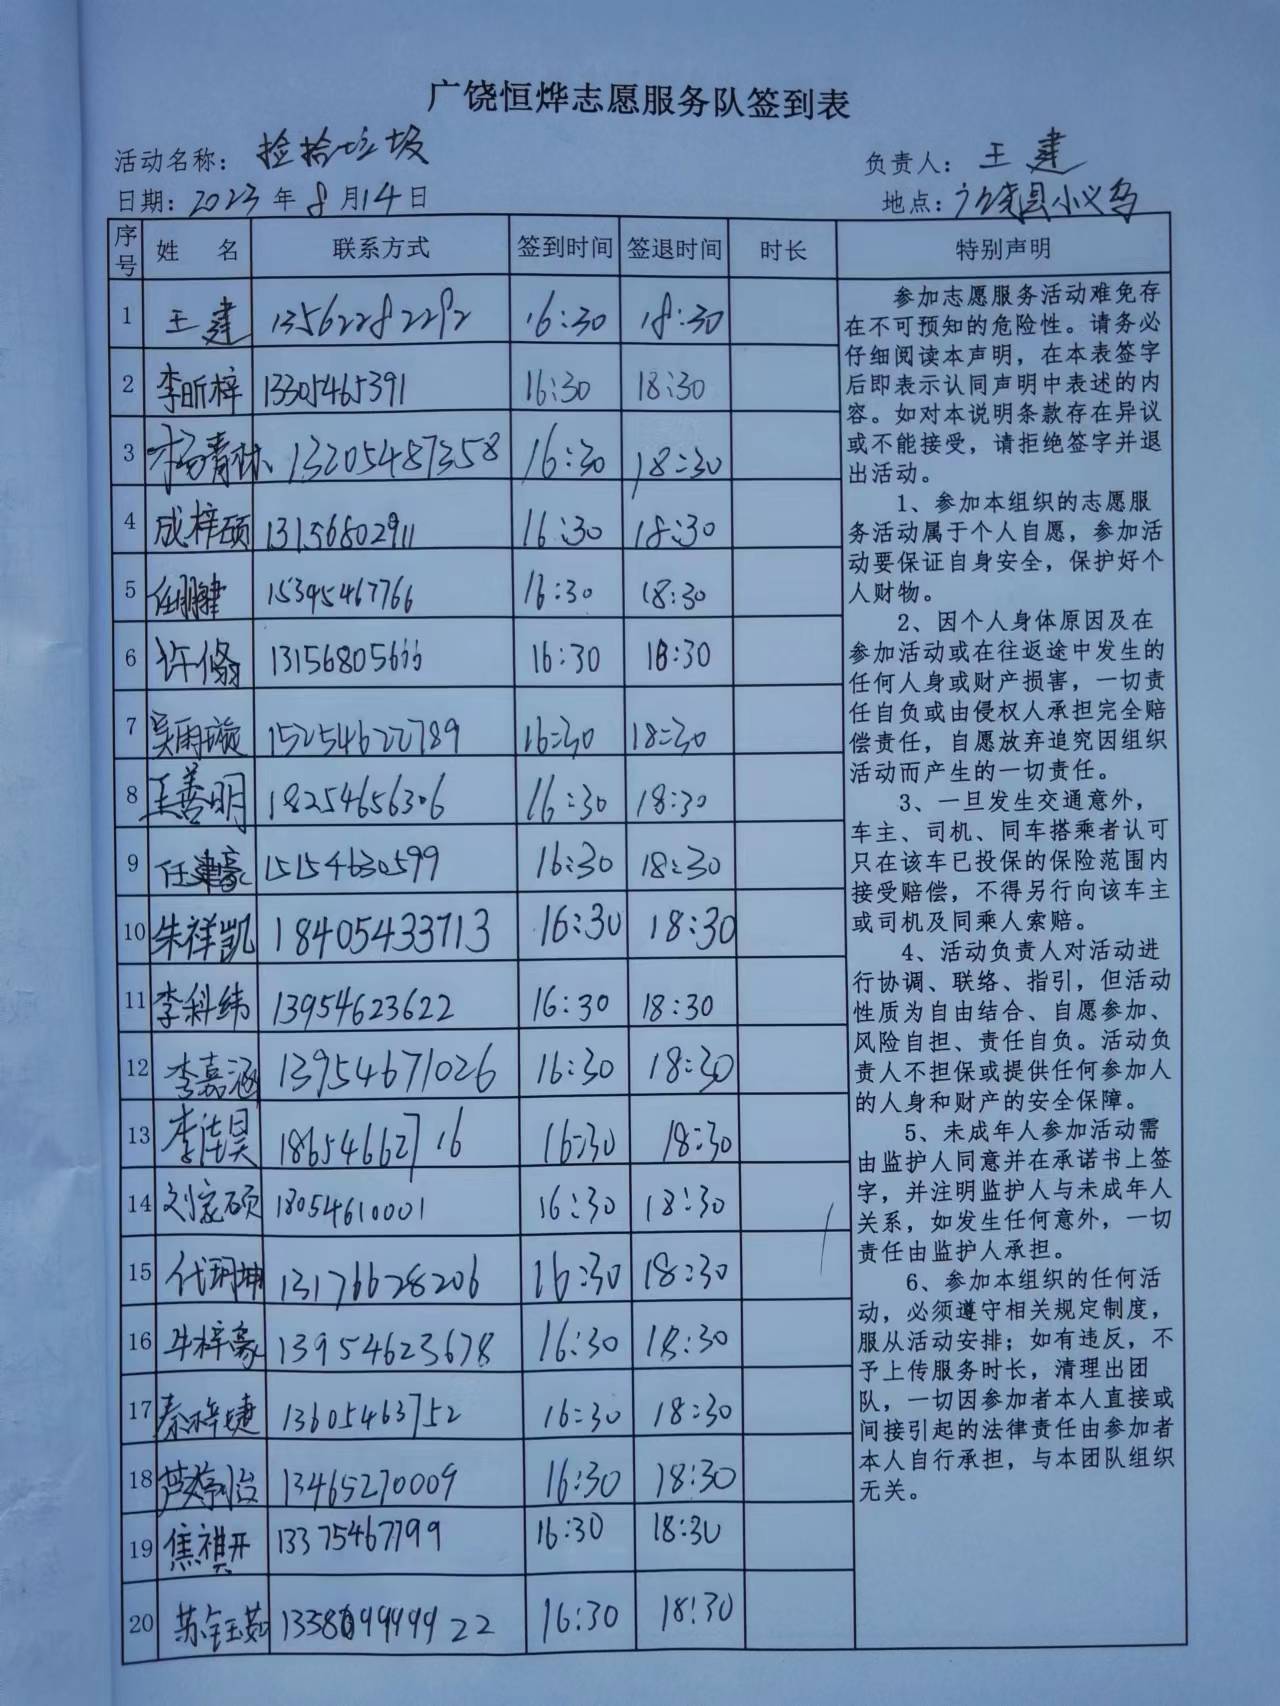 广饶恒烨志愿服务队签到表
活动名称：捡拾垃圾 负责人：王建
日期：2023年8月14日 地点：广饶县小义乌
序号 姓名 联系方式 签到时间 签退时间 时长 特别声明
1 王建 13562282292 16:30 18:30
2 李昕梓 13305465391 16:30 18:30
3 杨青林 13205487358 16:30 18:30
4 成梓硕 13156802911 16:30 18:30
5 任鹏健 15395467766 16:30 18:30
6 许脩 13156805666 16:30 18:30
7 吴雨璇 15254622789 16:30 18:30
8 王善明 18254656306 16:30 18:30
9 任建豪 15154630599 16:30 18:30
10 朱祥凯 18405433713 16:30 18:30
11 李科纬 13954623622 16:30 18:30
12 李嘉涵 13954671026 16:30 18:30
13 李佳昊 18654662716 16:30 18:30
14 刘家硕 18054610001 16:30 18:30
15 代珂坤 13176628206 16:30 18:30
16 牛梓豪 13954623678 16:30 18:30
17 秦梓婕 13605463752 16:30 18:30
18 13465270009 16:30 18:30
19 焦祺开 13375467799 16:30 18:30
20 苏钰茹 16:30 18:30
参加志愿服务活动难免存
在不可预知的危险性。请务必
仔细阅读本声明，在本表签字
后即表示认同声明中表述的内
容。如对本说明条款存在异议
或不能接受，请拒绝签字并退
出活动。
1、参加本组织的志愿服
务活动属于个人自愿，参加活
动要保证自身安全，保护好个
人财物。
2、因个人身体原因及在
参加活动或在往返途中发生的
任何人身或财产损害，一切责
任自负或由侵权人承担完全赔
偿责任，自愿放弃追究因组织
活动而产生的一切责任。
3、一旦发生交通意外，
车主、司机、同车搭乘者认可
只在该车已投保的保险范围内
接受赔偿，不得另行向该车主
或司机及同乘人索赔。
4、活动负责人对活动进
行协调、联络、指引，但活动
性质为自由结合、自愿参加、
风险自担、责任自负。活动负
责人不担保或提供任何参加人
的人身和财产的安全保障。
5、未成年人参加活动需
由监护人同意并在承诺书上签
字，并注明监护人与未成年人
关系，如发生任何意外，一切
责任由监护人承担。
6、参加本组织的任何活
动，必须遵守相关规定制度，
服从活动安排；如有违反，不
予上传服务时长，清理出团
队，一切因参加者本人直接或
间接引起的法律责任由参加者
本人自行承担，与本团队组织
无关。